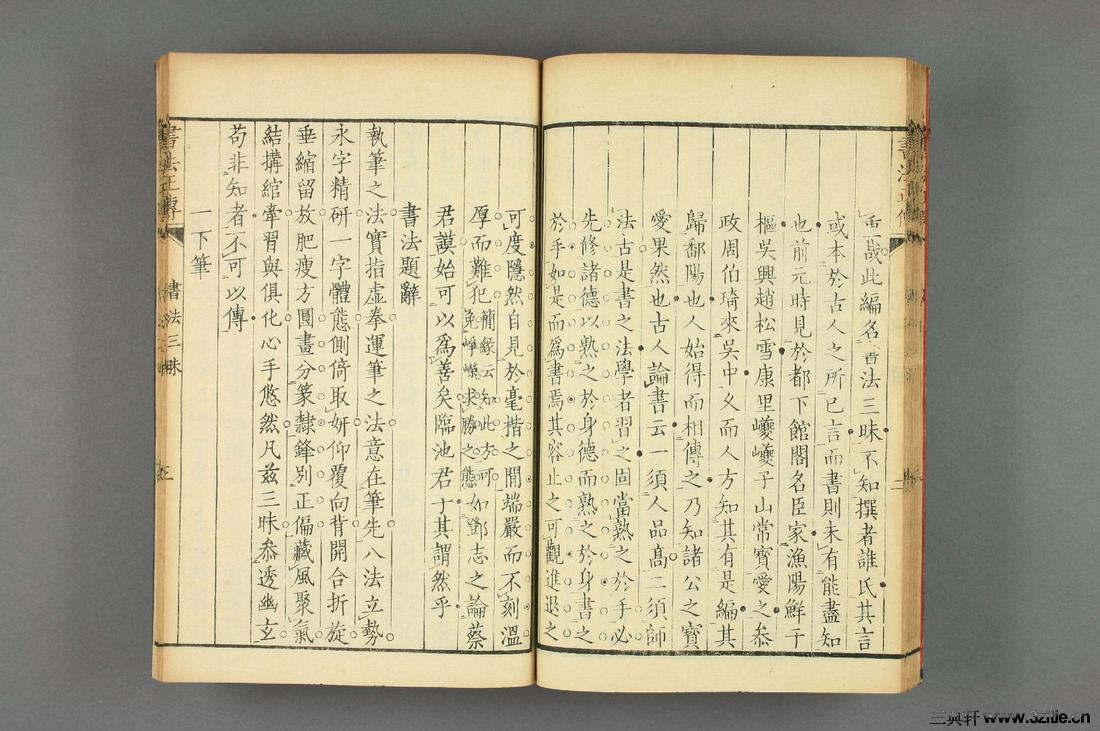 此編名書法三昧不知撰者誰氏其言
或本於古人之所已言而書則未有能盡知
也前元時見於都下館閣名臣家漁陽鮮于
樞吳興趙松雪康里巙巙子山常寶愛之叅
政周伯琦來吳中又而人方知其有是編其
歸鄱陽也人始得而相傳之乃知諸公之寶
愛果然也古人論書云一須人品高二須師
法古是書之法學者習之固當熟之於手必
先修諸德以熟之於身德而熟之於身書之
於手如是而爲書焉其容止之可觀進退之
可度隱然自見於毫楮之間端嚴而不刻溫
厚而難犯簡緣云知此方可免崢嶸求勝之態如鄧志之論蔡
君謨始可以爲善矣臨池君子其謂然乎
書法題辭
執筆之法實指虛拳運筆之法意在筆先八法立勢
永字精研一字體態側倚取妍仰覆向背開合折旋
垂縮留放肥瘦方圓畫分篆隸鋒别正偏藏風聚氣
結搆綰牽習與俱化心手悠然凡茲三昧叅透幽玄
苟非知者不可以傳
一下筆
書法正傳
書法三昧
三典轩 www.3zitie.cn